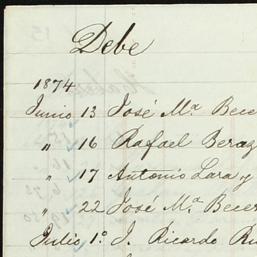 Debe
1874
Junio 13 José Mª Bece
" 16 Rafael Beraz
" 17 Antonio Lara y
" 22 José Mª Becer
Julio 1º J. Ricardo Ru